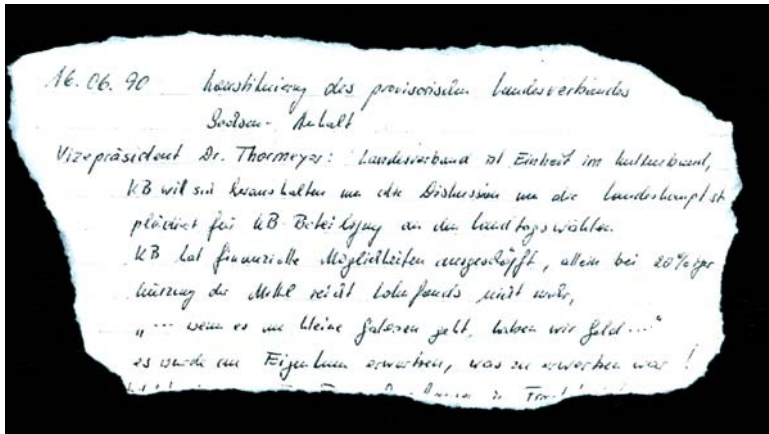 16.06.90 Konstituierung des provisorischen Landesverbandes
Sachsen-Anhalt
Vizepräsident Dr. Thormeyer: Landesverband ist Einheit im Kulturbund,
KB will sich heraushalten um die Diskussion um die Landeshauptst
plädiert für KB-Beteiligung an den Landtagswahlen.
KB hat finanzielle Möglichkeiten ausgeschöpft, allein bei 20%iger
Kürzung der Mittel reicht Lohnfonds nicht mehr,
"... wenn es um kleine geht, haben wir Geld..."
es wurde an Eigentum erworben, was zu erwerben war!